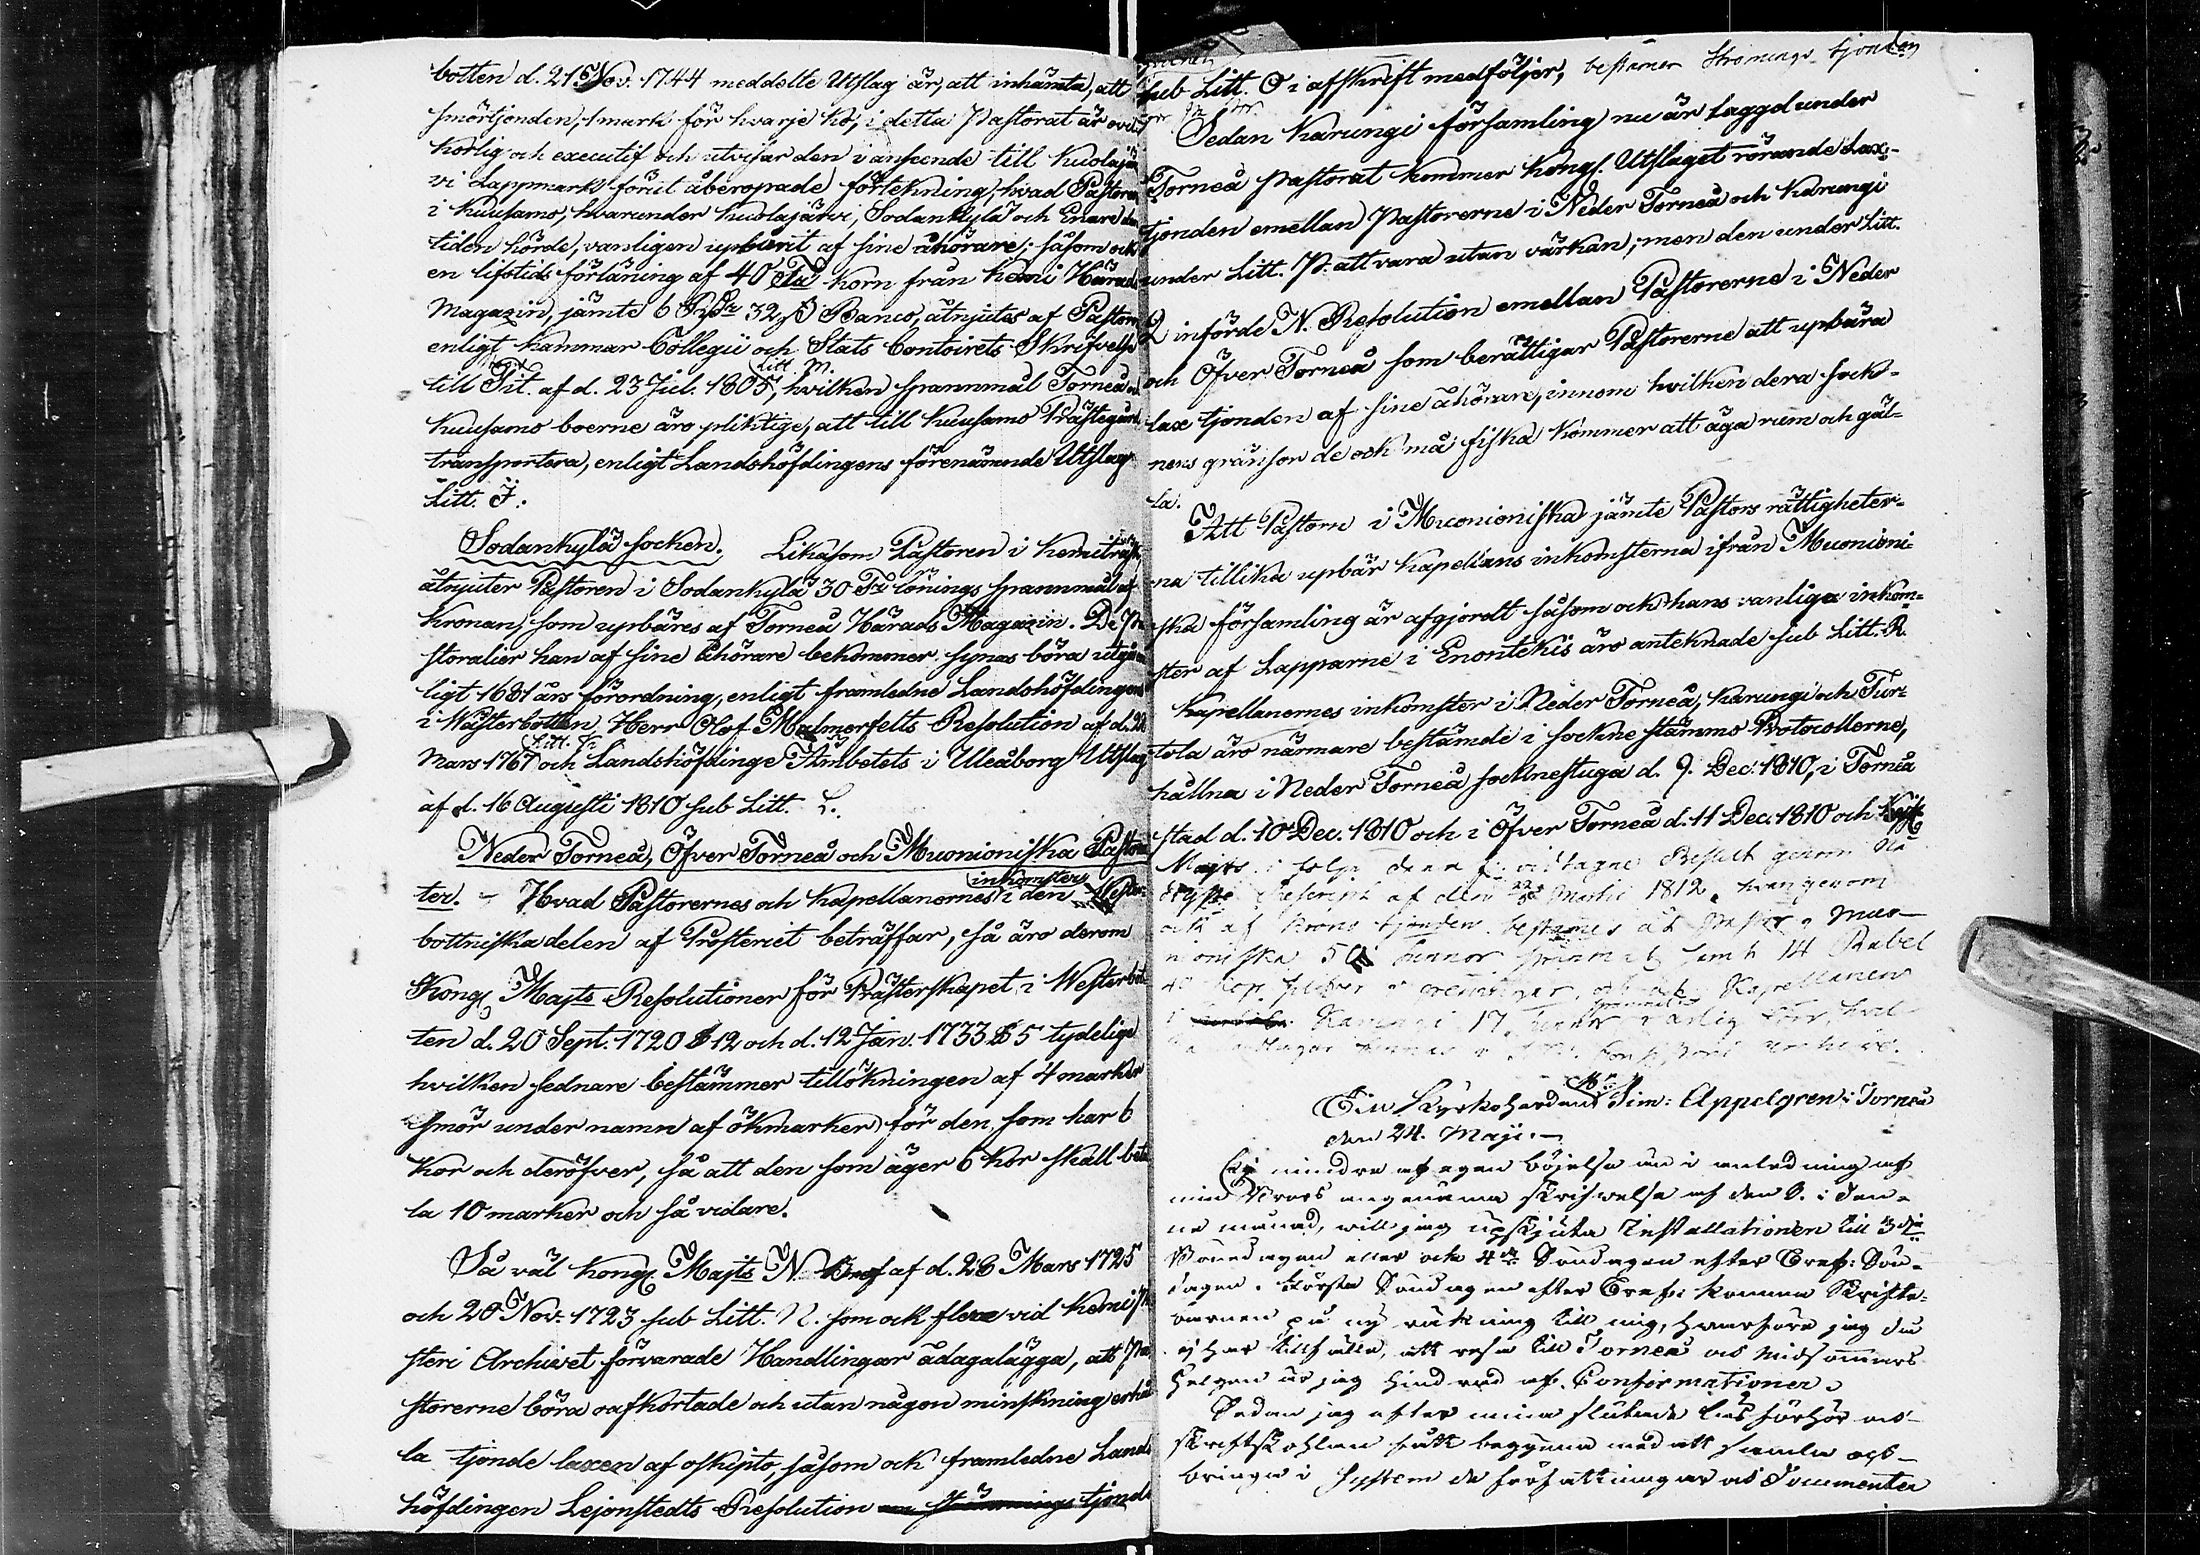 botten d. 21 Nov. 1744 meddelte Utslag är, att inhämta, att
smörtjonden, 1 mark för hvarje ko, i detta Pastorat är ovil
korlig och executif och utvisar den i anseende till Kuolajär
vi Lappmark förut åberopade förtekning, hvad Pastorn
i Kuusamo, hvarunder Kuolajärvi, Sodankylä och Enare den
tiden hörde, vanligen upburit af sine åhörare; såsom ock
en lifstids förläning af 40 Korn från Kemi Härads
Magazin, jämte 6 32 Banco, åtnjutes af Pastorn
enligt Kammar Collegii och Stats Contoirets Skrifvelse
litt. M.
till Tit. af d. 23 Jul. 1805, hvilken spannmål Torneå och
Kuusamo boerne äro pliktige, att till Kuusamo Prästegård
transportera, enligt Landshöfdingens förenämnde Utslag
Litt. J.
Sodankylä socken. Likasom Pastoren i Kemiträsk,
åtnjuter Pastoren i Sodankylä 30 Tr lönings spannmål af
Kronan, som upbäres af Torneå Härads Magazin. De Pa
storalier han af sine åhörare bekommer synas böra utgå en
ligt 1681 års förordning, enligt framledne Landshöfdingens
i Västerbotten Herr Olof Malmerfelts Resolution af d.
Litt. K
Mars 1767 och Landshöfdinge Ämbetets i Uleåborg Utslag
af d. 16 Augusti 1810 sub Litt. L.
Neder Torneå, Öfver Torneå och Muonioniska Pastora
inkomster
ter. - Hvad Pastorernes och Kapellanernes i den Vester
bottniska delen af Prosteriet beträffar, så äro derom
Kongl Majts Resolutioner för Prästerskapet i Westerbot
ten d. 20 Sept. 1720 § 12 och d. 12 Jan. 1733 § 5 tydelige
hvilken sednare bestämmer tillökningen af 4 marker
smör under namn af ökmarker för den, som har 6
Kor och deröfver, så att den som äger 6 Kor skall beta
la 10 marker och så vidare.
Så väl Kongl Majts N. Bref af d. 26 Mars 1725
och 20 Nov. 1723 sub Litt. N. som ock flere vid Kemi Pro
steri Archivet förvarade Handlingar ådagalägga, att Pa
storerne böra oafkortade och utan någon minskning erhål
la tjonde laxen af oskipto, såsom ock framledne Lands
höfdingen Lejonstedts Resolution tjonde
sub Litt. O i afskrift medföljer, bestämer Strömings tjonden
Sedan Karungi församling nu är laggd under
Torneå Pastorat kommer Kongl. Utslaget rörande Lax-
tjonden emellan Pastorerne i Neder Torneå och Karungi
under Litt. P. att vara utan värkan; men den under Litt.
Q införde N. Resolution emellan Pastorerne i Neder
och Öfver Torneå som berättigar Pastorerne att upbära
lax tjonden af sine åhörare, innom hvilken dera sock-
nens gränsor de ock må fiska kommer att äga rum och gäl-
la.
Att Pastorn i Muonioniska jämte Pastors rättigheter-
na tillika upbär Kapellans inkomsterna ifrån Muonioni-
ska församling är afgjordt såsom ock hans vanliga inkom-
ster af Lapparne i Enontekis äro anteknade sub Litt. R.
Kapellanernes inkomster i Neder Torneå, Karungi och Tur-
tola äro närmare bestämde i sockne stämmo Protocollerne,
hållna i Neder Torneå socknestuga d. 9. Dec. 1810, i Torneå
stad d. 10 Dec. 1810 och i Öfver Torneå d. 11 Dec. 1810 och
Majts i följe deraf vidtagne Beslut genom Nå
digste Rescript af den Martii 1812, hvarigenom
ock af Krono tjonden bestämes åt Pastor i Muo-
nioniska 50 tunnor spanmål samt 14 Rubel
40 Kop. Silfver Kapellanen
i Karungi 17 tunnor årlig
Til Kyrkoherden Mr Sim: Appelgren i Torneå
den 24. Maji.
Ej mindre af egen böjelse än i anledning af
min Brors angenäma skrifwelse af den 8. i den-
ne månad, will jag upskjuta Installationen till 3dje
Söndagen eller ock 4de Söndagen efter Tref: Sön-
dagen. Första Söndagen efter Tref: komma Skrifte-
barnen på ny räkning till mig, hwarföre jag då
ej har tillfälle, att resa till Torneå och Midsommars
Helgen är jag hindrad af Confirmationen.
Sedan jag efter mina slutade läsförhör och
skriftskohlan fått begynna med att samla och
bringa i System de författningar och Documenter